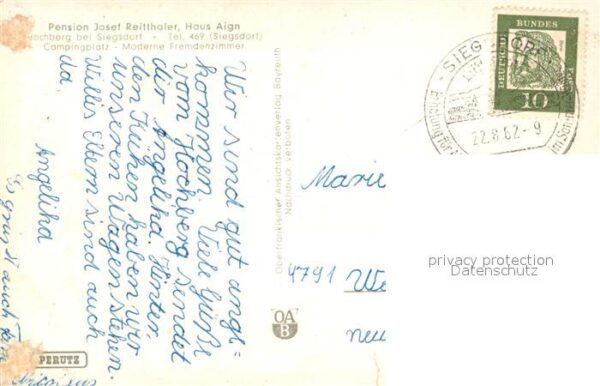 Pension Josef Reitthaler, Haus Aign
Hochberg bei Siegsdorf - Tel. 469 (Siegsdorf)
Campingplatz - Moderne Fremdenzimmer
Wir sind gut ange=
kommen. Viele Grüße
vom Hochberg sendet
dir Angelika. Hinter
den Kühen haben wir
unseren Wagen stehen.
Willis Eltern sind auch
da.
Angelika
Es grüßt auch
PERUTZ
Oberfränkischer Ansichtskartenverlag Bayreuth
Nachdruck verboten
OA
B
DEUTSCHE BUNDESPOST
10
SIEGSDORF
22.8.62-9
Marie
4791 We
neu
privacy protection
Datenschutz